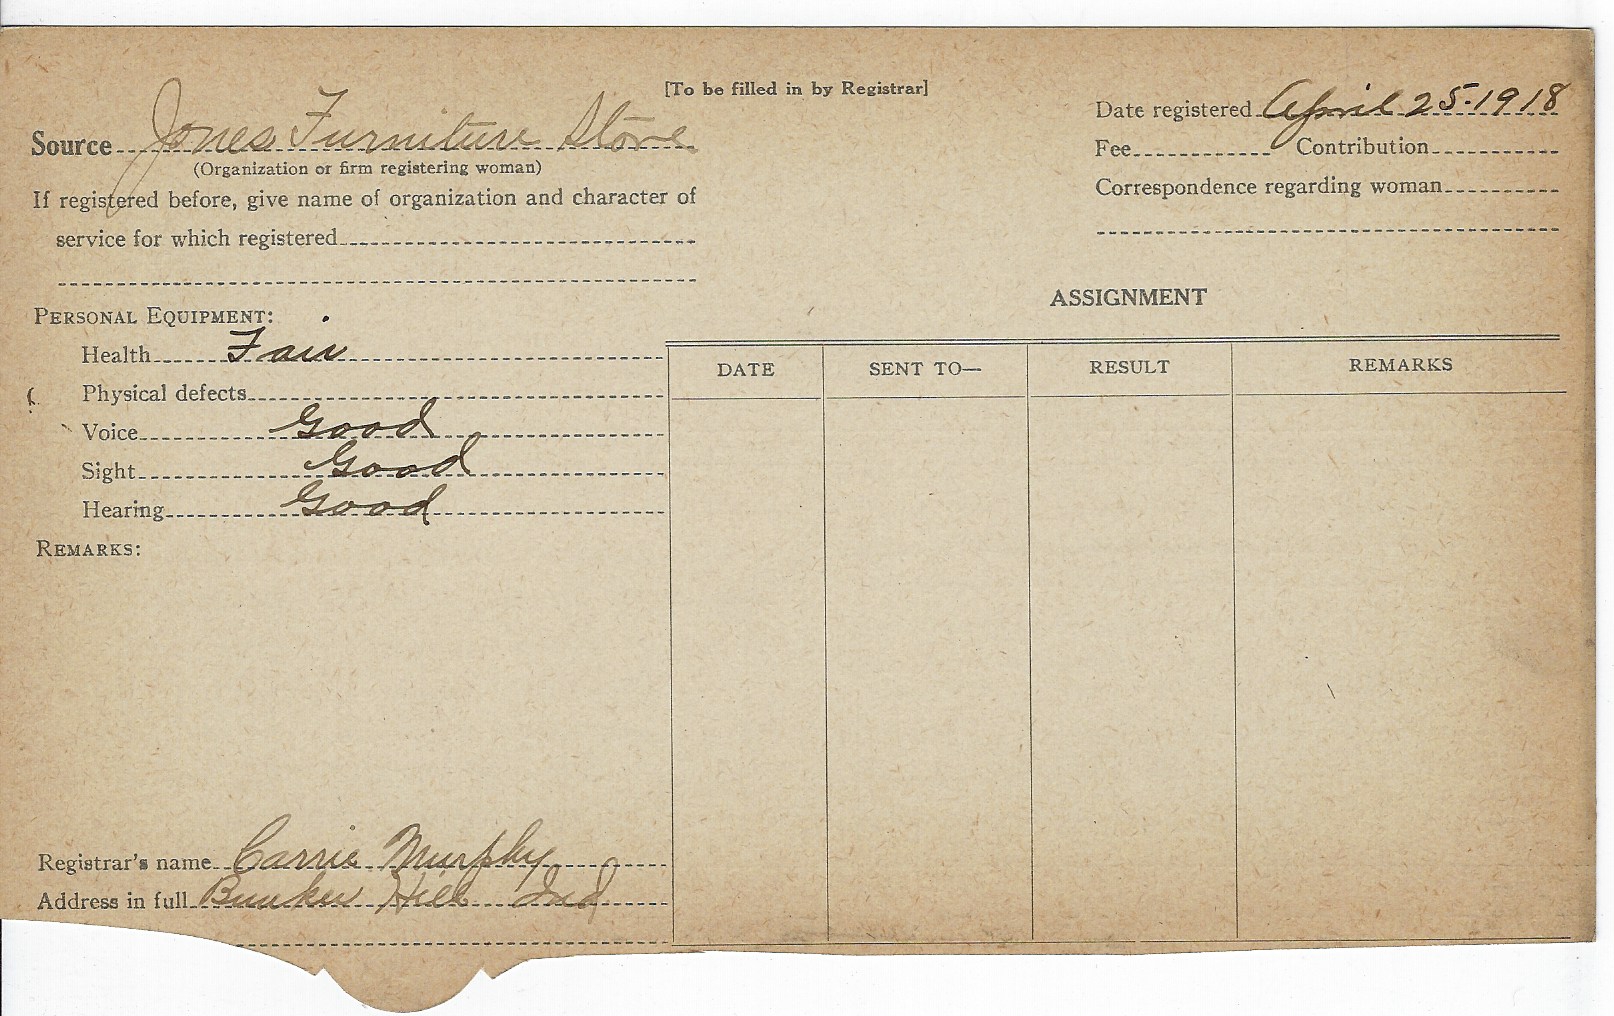 [To be filled in by Registrar]
Source Jones Furniture Store
(Organization or firm registering woman)
If registered before, give name of organization and character of
service for which registered
Date registered April 25-1918
Fee Contribution
Correspondence regarding woman
PERSONAL EQUIPMENT:
Health Fair
Physical defects
Voice Good
Sight Good
Hearing Good
REMARKS:
Registrar's name Carrie Murphy
Address in full Bunker Hill Ind
ASSIGNMENT
DATE SENT TO— RESULT REMARKS